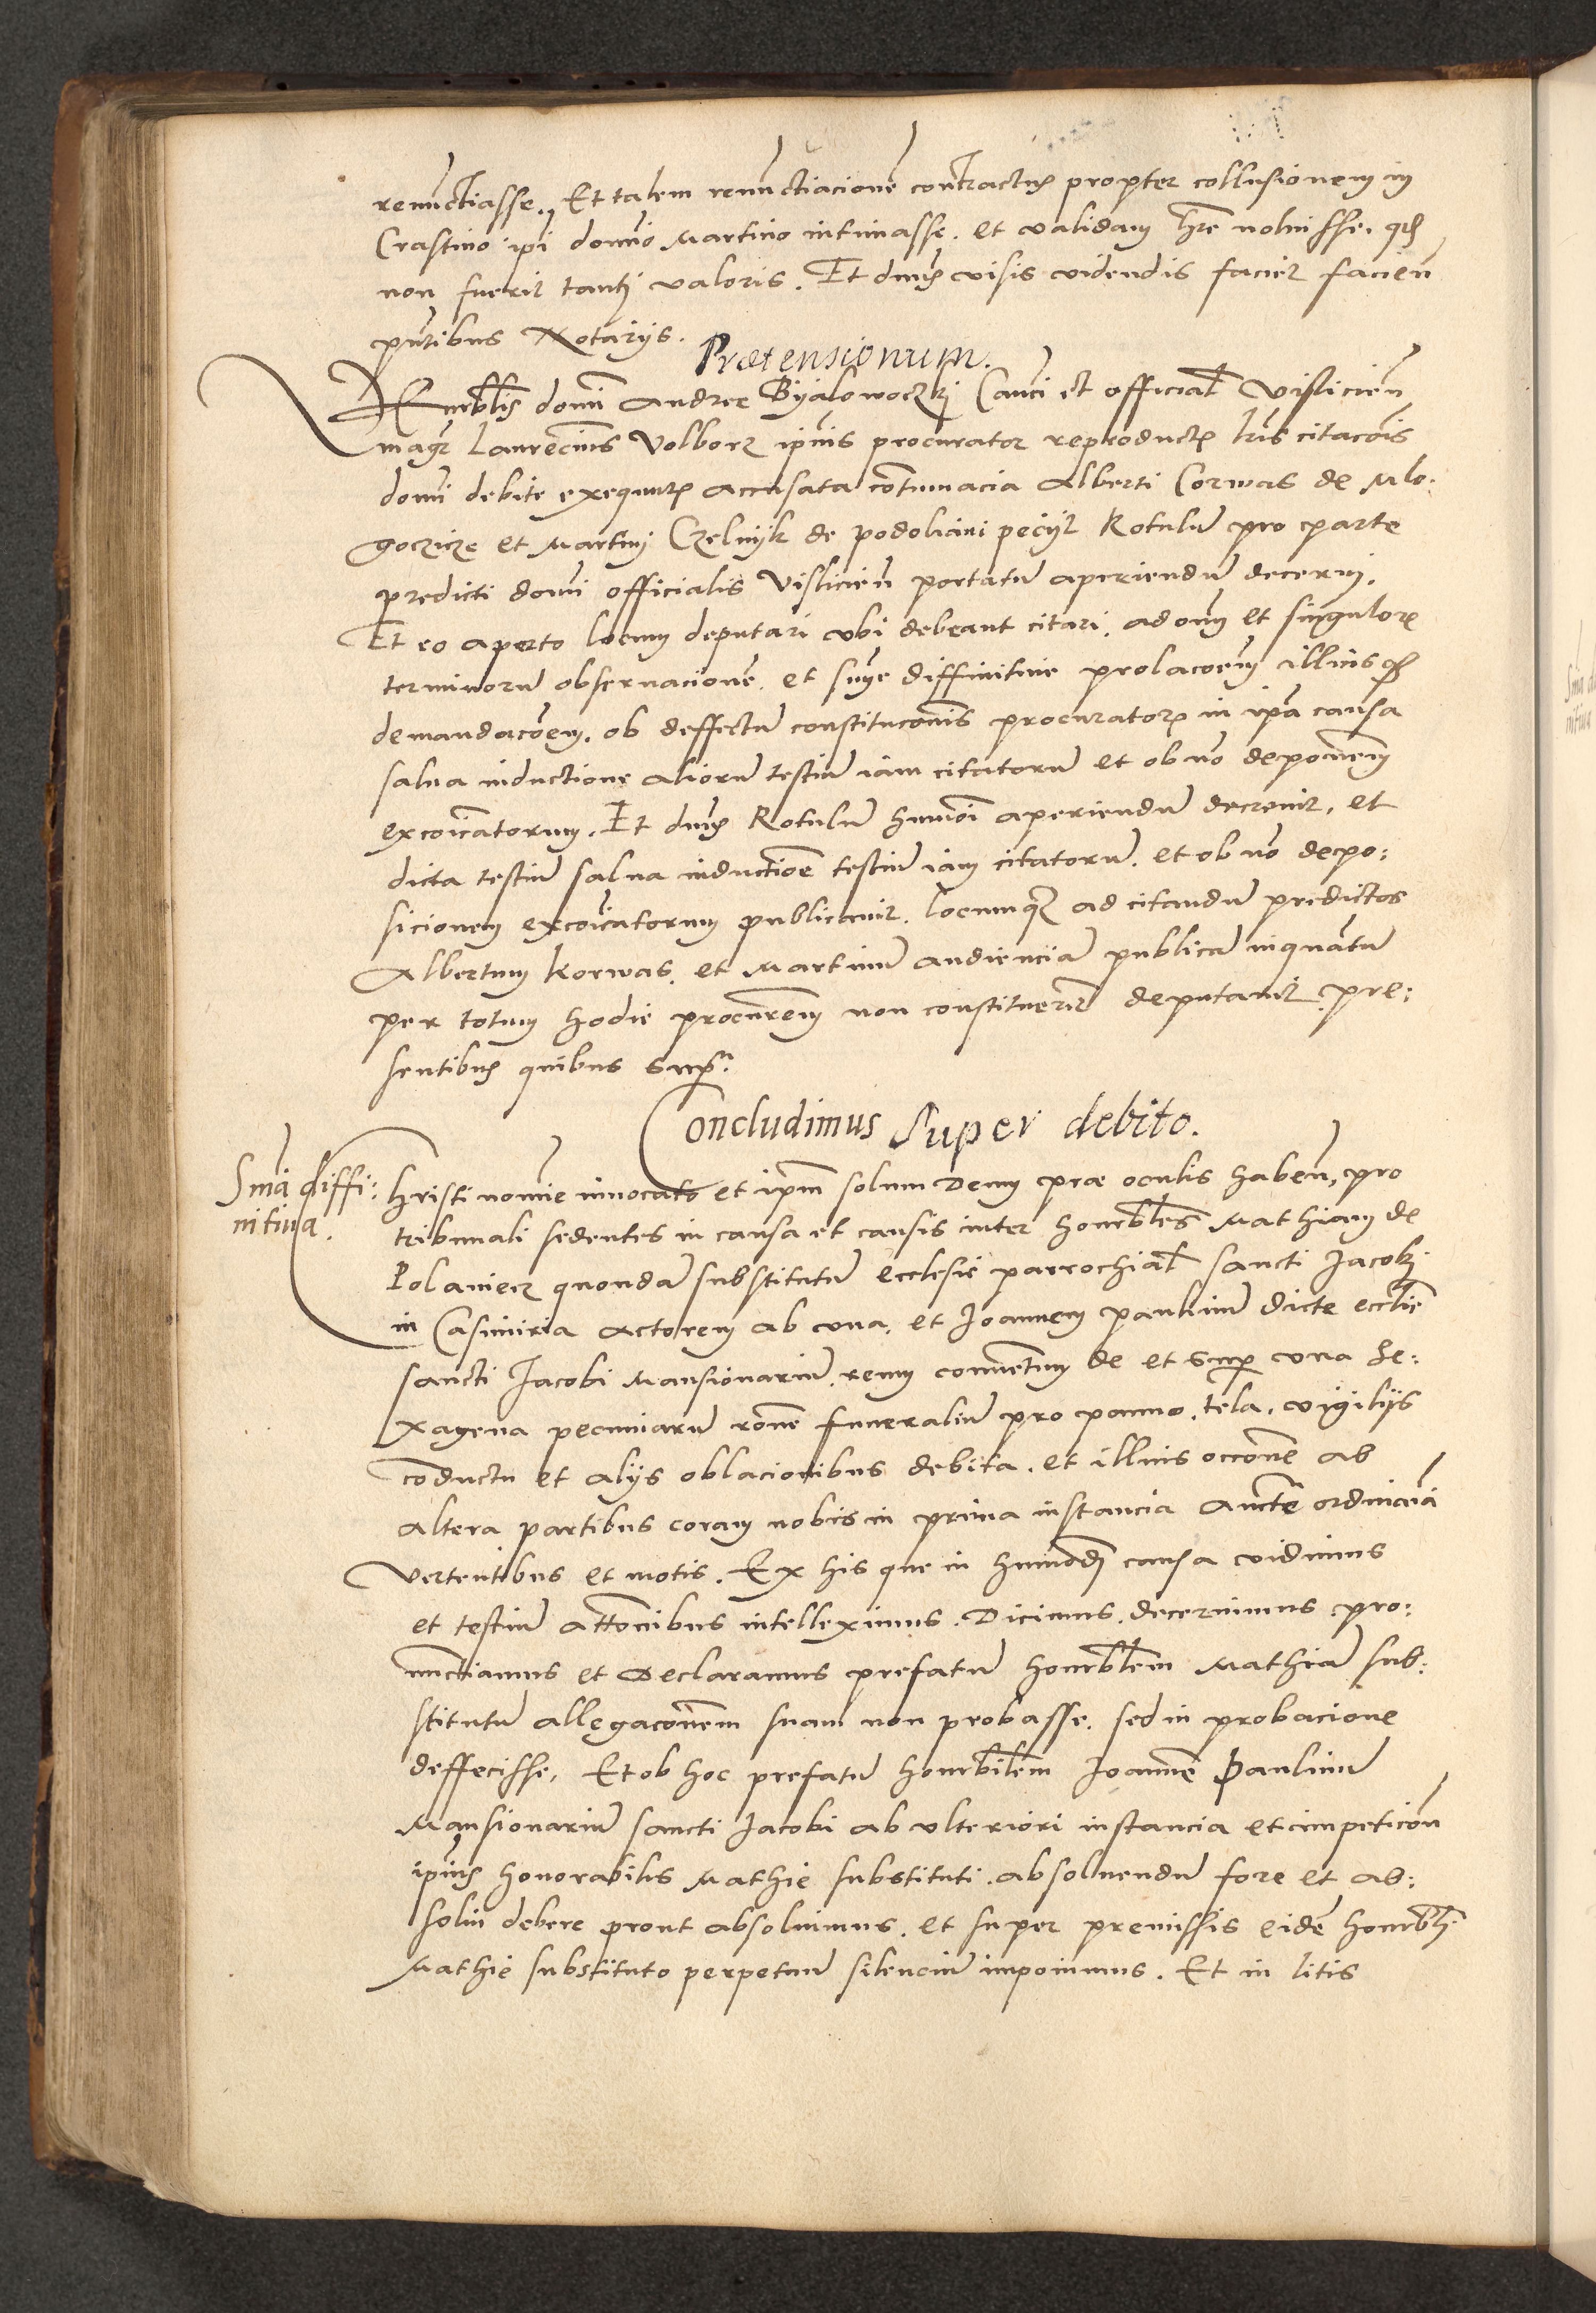 renu̅ctiasse. Et talem renu̅ctiacione̅ contractus propter collusionem in
Crastino ipi domino Martino intimasse. et validam hre̅ noluisse. q
non fuerit tanti valoris. Et dnus visis videndis faciet facien̅
pn̅tibus Notarijs.
Prætensionum.
Venrblis domi̅ Andree Byalowoczkj Can̅ci et official̅ Vislicien̅
magr Laure̅cius Volborz ipi̅us procurator reproductis lr̅is citaco̅is
domi̅ debite exequutis accusata co̅tumacia Alberti Corwas de Mlo-
goczicze et Martini Czelnyk de podolicini pecijt Rotulu̅ pro parte
predicti domi̅ officialis Vislicien̅ portatu̅ aperiendu̅ decerni.
Et eo aperto locum deputari vbi debeant citari. ad om̅ et singulorum
terminoru̅ obseruacione̅. et sn̅ie diffinitiue prolaco̅em illiusq
demandaco̅em. ob deffectu̅ constituco̅nis procuratoris in ipa̅ causa
salua inductione alioru̅ testiu̅ iam citatoru̅ et ob no̅ depo̅nem
exco̅icatorum. Et dnus Rotulu̅ hm̅oi aperiendu̅ decreuit. et
dicta testiu̅ salua inductio̅e testiu̅ iam citatoru̅. et ob no̅ depo:
sicionem exco̅icatorum publicauit. locumq3 ad citandu̅ predictos
Albertum Korwas. et Martinu̅ audiencia̅ publica̅ inqua̅tu̅
per totum hodie procu̅rem non constituerit deputauit. pre:
sentibus quibus supra.
Concludimus super debito.
Sn̅ia diffi:
nitiua.
hristi nomi̅e inuocato et ipm̅ solum Deum præ oculis haben̅. pro
tribunali sedentes in causa et causis inter honorbles̅ Mathiam de
Polaniecz quonda̅ substitutu̅ ecclesie parrochial̅ sancti Jacobi
in Casimiria actorem ab vna. et Joannem paulinu̅ dicte eccl̅ie
sancti Jacobi Mansionariu̅. reum conue̅tum de et super vna se:
xagena pecuniaru̅ ro̅ne funeraliu̅ pro panno. tela. vigilijs
co̅ductu et alijs oblacionibus debita. et illius occo̅ne ab
altera partibus coram nobis in prima instancia auct̅e ordinaria
vertentibus et motis. Ex his que in hm̅odi causa vidimus
et testiu̅ atto̅nibus intelleximus. Dicimus. decernimus. pro:
nunctiamus et Declaramus prefatu̅ honorblem̅ Mathia̅ sub:
stitutu̅ allegaco̅nem suam non probasse. sed in probacione
deffecisse. Et ob hoc prefatu̅ honorbilem̅ Joanne̅ Paulinu̅
Mansionariu̅ sancti Jacobi ab vlteriori instancia et impeticion̅
ipi̅us honorabilis Mathie substituti. absoluendu̅ fore et ab:
solui debere prout absoluimus. et super premissis eide̅ honorbli
Mathie substituto perpetuu̅ silenciu̅ imponimus. Et in litis